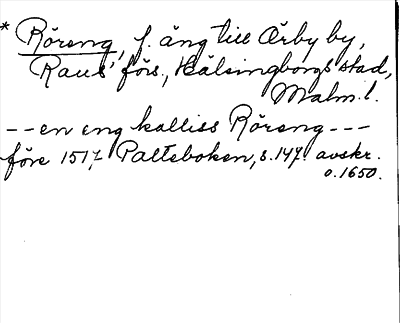 * Röreng, f. äng till Ørby by,
Raus' förs., Hälsingborgs stad,
Malm. l.
-- en eng kalliss Röreng ---
före 1517. Palteboken, s. 147. avskr.
o. 1650.